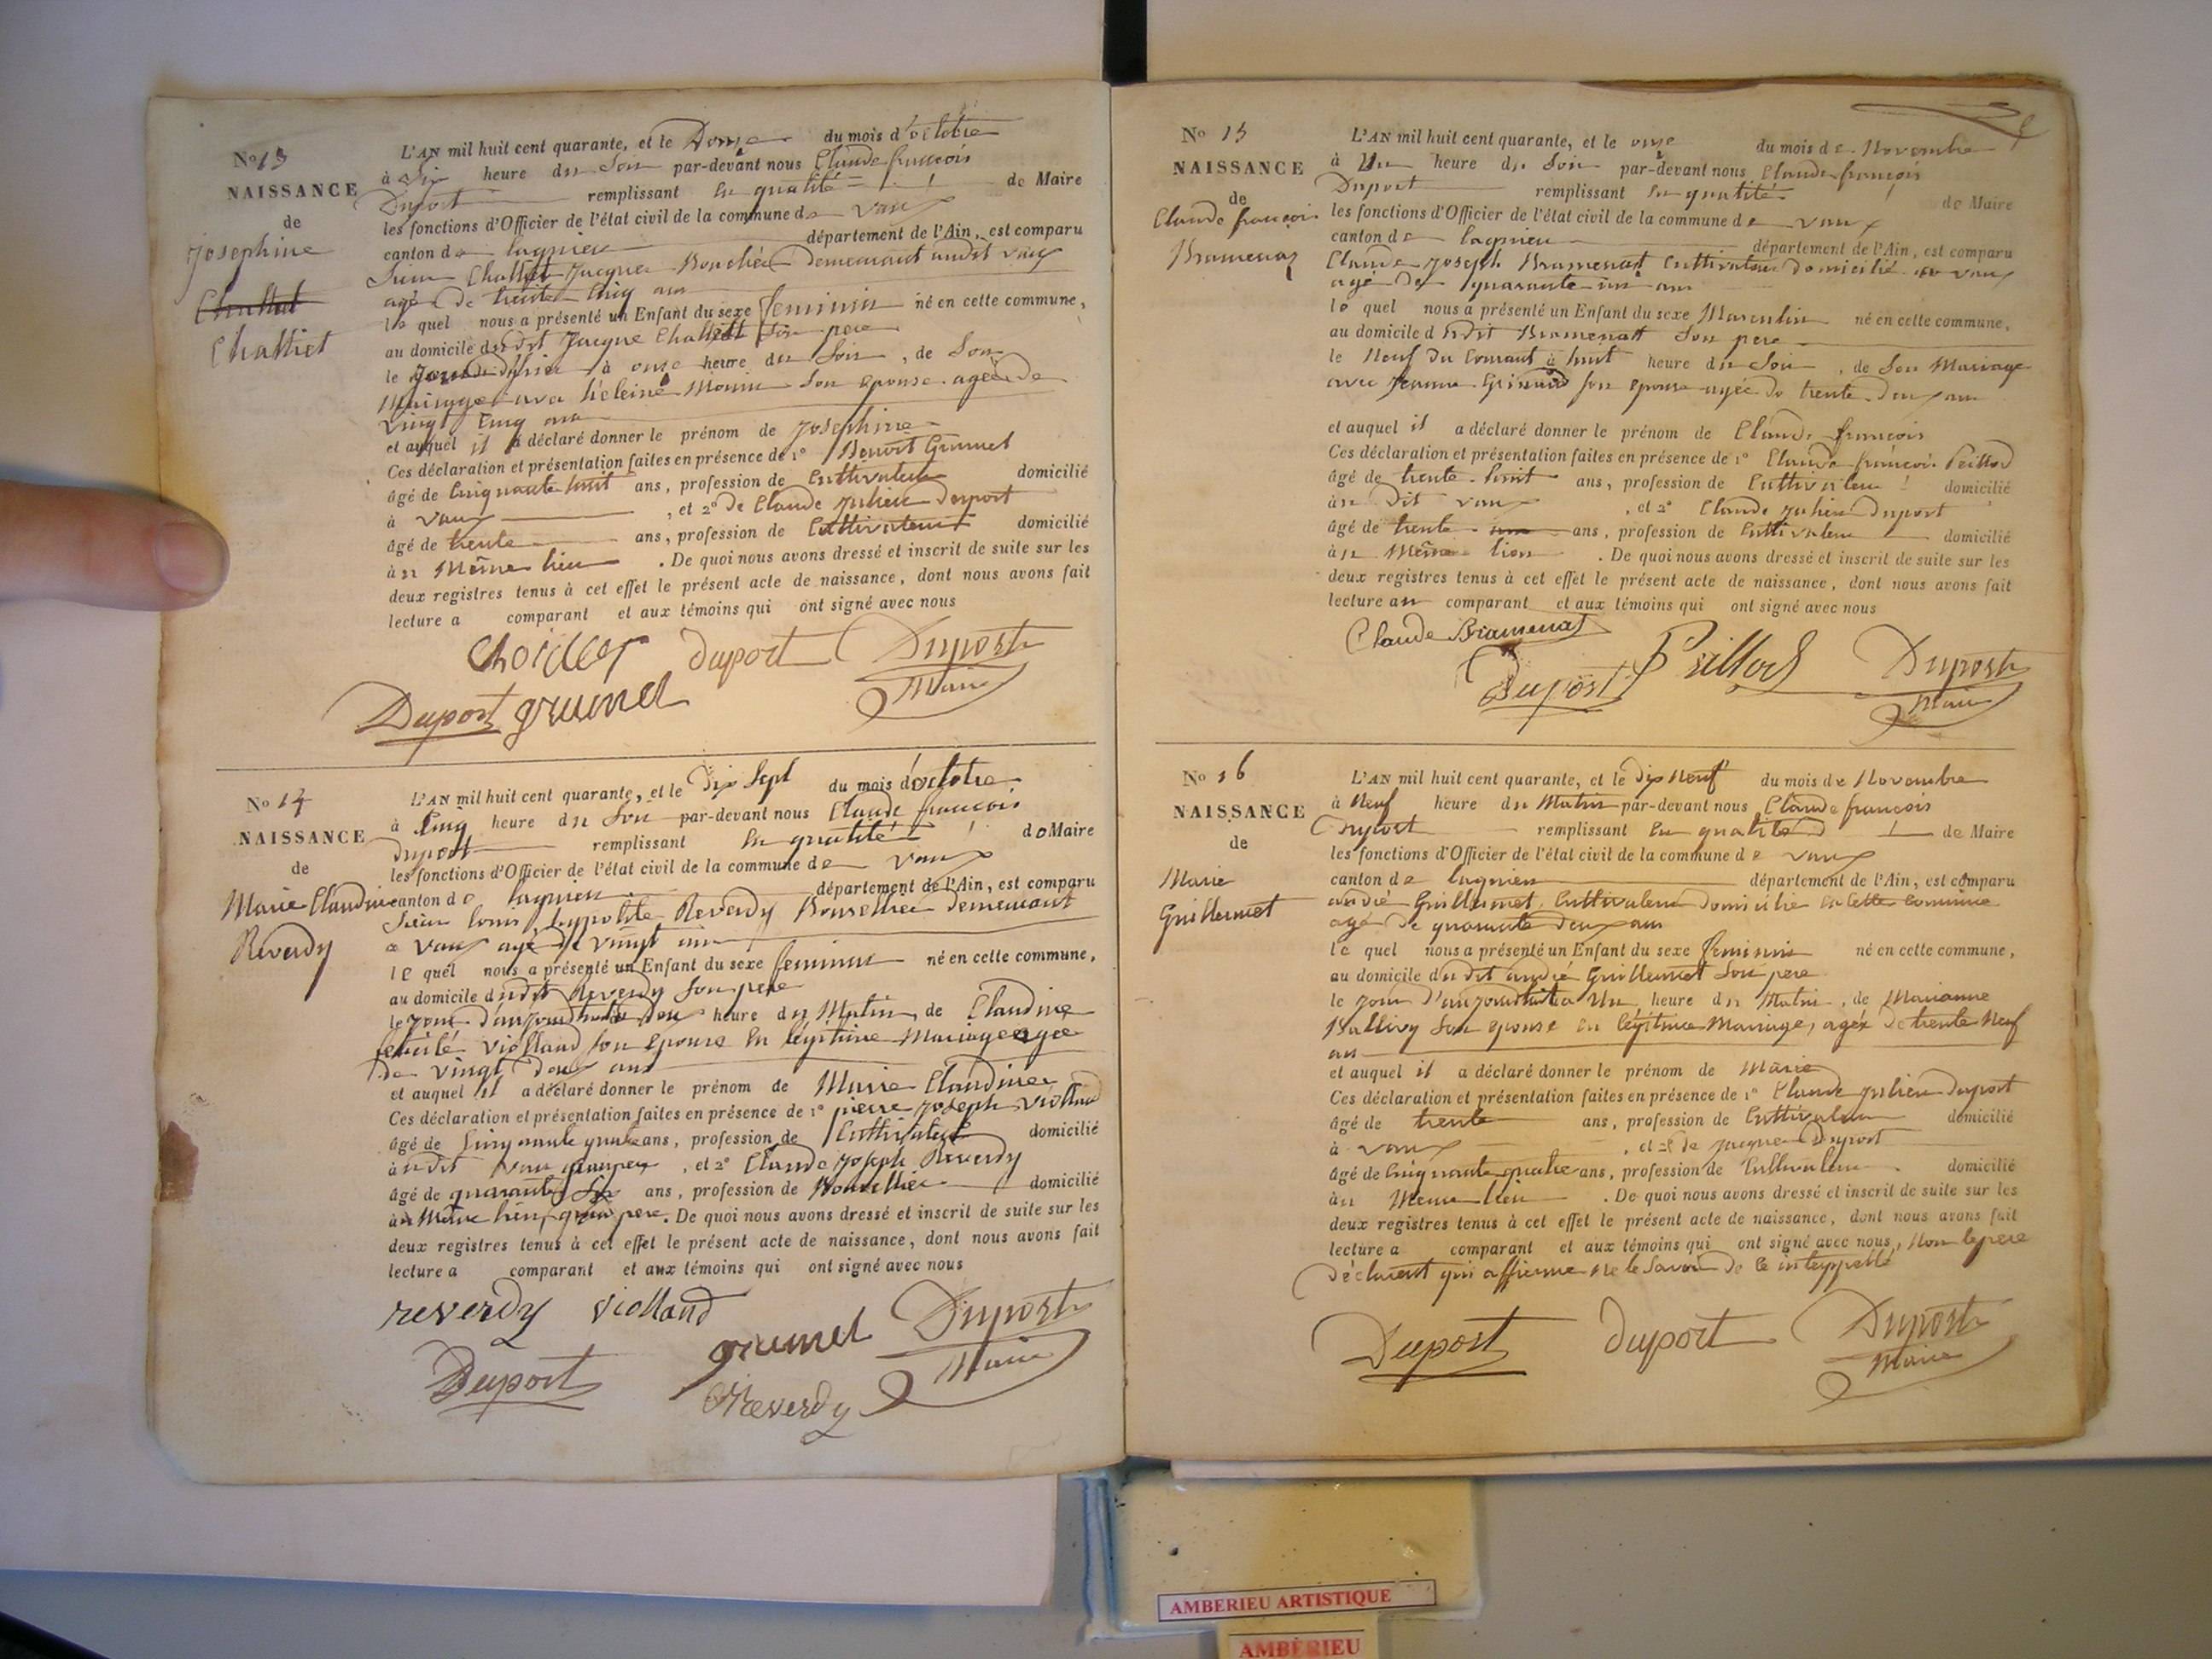 No 13
NAISSANCE
de
Josephine
Chattiet
L'AN mil huit cent quarante, et le Douze du mois d'octobre
à Six heure du Soir par-devant nous Claude françois
Duport remplissant en qualité de Maire
les fonctions d'Officier de l'état civil de la commune de Vaux
canton de lagnieu département de l'Ain, est comparu
Sieur Jacques demeurant audit Vaux
agé de trente cinq ans
le quel nous a présenté un Enfant du sexe feminin né en cette commune,
au domicile dudit Jacque son pere
le à onze heure du Soir, de Son
Mariage avec héleine Monin Son epouse agée de
Vingt Cinq ans
et auquel il a déclaré donner le prénom de Josephine
Ces déclaration et présentation faites en présence de 1° Benoit Grumel
âgé de Cinquante huit ans, profession de Cultivateur domicilié
à Vaux, et 2° de Claude Julien Duport
âgé de trente ans, profession de Cultivateur domicilié
à u Même lieu. De quoi nous avons dressé et inscrit de suite sur les
deux registres tenus à cet effet le présent acte de naissance, dont nous avons fait
lecture a comparant et aux témoins qui ont signé avec nous
duport Duport
Maire
Duport grumel
No 14
NAISSANCE
de
Marie Claudine
Reverdy
L'AN mil huit cent quarante, et le Dix Sept du mois d'octobre
à Cinq heure du Soir par-devant nous Claude françois
Duport remplissant en qualité de Maire
les fonctions d'Officier de l'état civil de la commune de Vaux
canton de lagnieu département de l'Ain, est comparu
Sieur louis hypolite Reverdy Bourellier demeurant
a Vaux agé de vingt un
le quel nous a présenté un Enfant du sexe feminin né en cette commune,
au domicile dudit Reverdy Son pere
le jour d'aujourd'hui a deux heure du Matin, de Claudine
felicité Violland son epouse en légitime Mariage agée
de vingt deux ans
et auquel il a déclaré donner le prénom de Marie Claudine
Ces déclaration et présentation faites en présence de 1° pierre Joseph Violland
âgé de Cinquante quatre ans, profession de Cultivateur domicilié
à u dit Vaux, et 2° Claude Joseph Reverdy
âgé de quarante Six ans, profession de Bourellier domicilié
à u Même lieu, grand pere. De quoi nous avons dressé et inscrit de suite sur les
deux registres tenus à cet effet le présent acte de naissance, dont nous avons fait
lecture a comparant et aux témoins qui ont signé avec nous
reverdy violland Duport
Duport grumel Maire
Reverdy
No 15
NAISSANCE
de
Claude françois
Bramenaz
L'AN mil huit cent quarante, et le onze du mois de Novembre
à Un heure du Soir par-devant nous Claude françois
Duport remplissant en qualité de Maire
les fonctions d'Officier de l'état civil de la commune de Vaux
canton de lagnieu département de l'Ain, est comparu
Claude Joseph Bramenat Cultivateur domicilié a Vaux
agé de quarante un ans
le quel nous a présenté un Enfant du sexe Masculin né en cette commune,
au domicile dudit Bramenat Son pere
le Neuf du Courant à huit heure du Soir, de Son Mariage
avec Jeanne son epouse agée de trente deux ans
et auquel il a déclaré donner le prénom de Claude françois
Ces déclaration et présentation faites en présence de 1° Claude françois Peillod
âgé de trente huit ans, profession de Cultivateur domicilié
à u dit Vaux, et 2° Claude Julien Duport
âgé de trente ans, profession de Cultivateur domicilié
à u Même lieu. De quoi nous avons dressé et inscrit de suite sur les
deux registres tenus à cet effet le présent acte de naissance, dont nous avons fait
lecture au comparant et aux témoins qui ont signé avec nous
Claude Bramenat
Duport Peillod Duport
Maire
No 16
NAISSANCE
de
Marie
Guillermet
L'AN mil huit cent quarante, et le dix Neuf du mois de Novembre
à Neuf heure du Matin par-devant nous Claude françois
Duport remplissant en qualité de Maire
les fonctions d'Officier de l'état civil de la commune de Vaux
canton de lagnieu département de l'Ain, est comparu
andré Guillermet, Cultivateur domicilié en cette commune
agé de quarante deux ans
le quel nous a présenté un Enfant du sexe feminin né en cette commune,
au domicile dudit andré Guillermet Son pere
le jour d'aujourd'hui a Un heure du Matin, de Marianne
Ballivy Son epouse en légitime Mariage, agée de trente Neuf
ans
et auquel il a déclaré donner le prénom de Marie
Ces déclaration et présentation faites en présence de 1° Claude Julien Duport
âgé de trente ans, profession de Cultivateur domicilié
à Vaux, et 2° de Jacque Duport
âgé de Cinquante quatre ans, profession de Cultivateur domicilié
à u Meme lieu. De quoi nous avons dressé et inscrit de suite sur les
deux registres tenus à cet effet le présent acte de naissance, dont nous avons fait
lecture a comparant et aux témoins qui ont signé avec nous, Non le pere
déclarent qui affirme ne le Savoir de ce interppellé
Duport duport Duport
Maire
AMBERIEU ARTISTIQUE
AMBÉRIEU